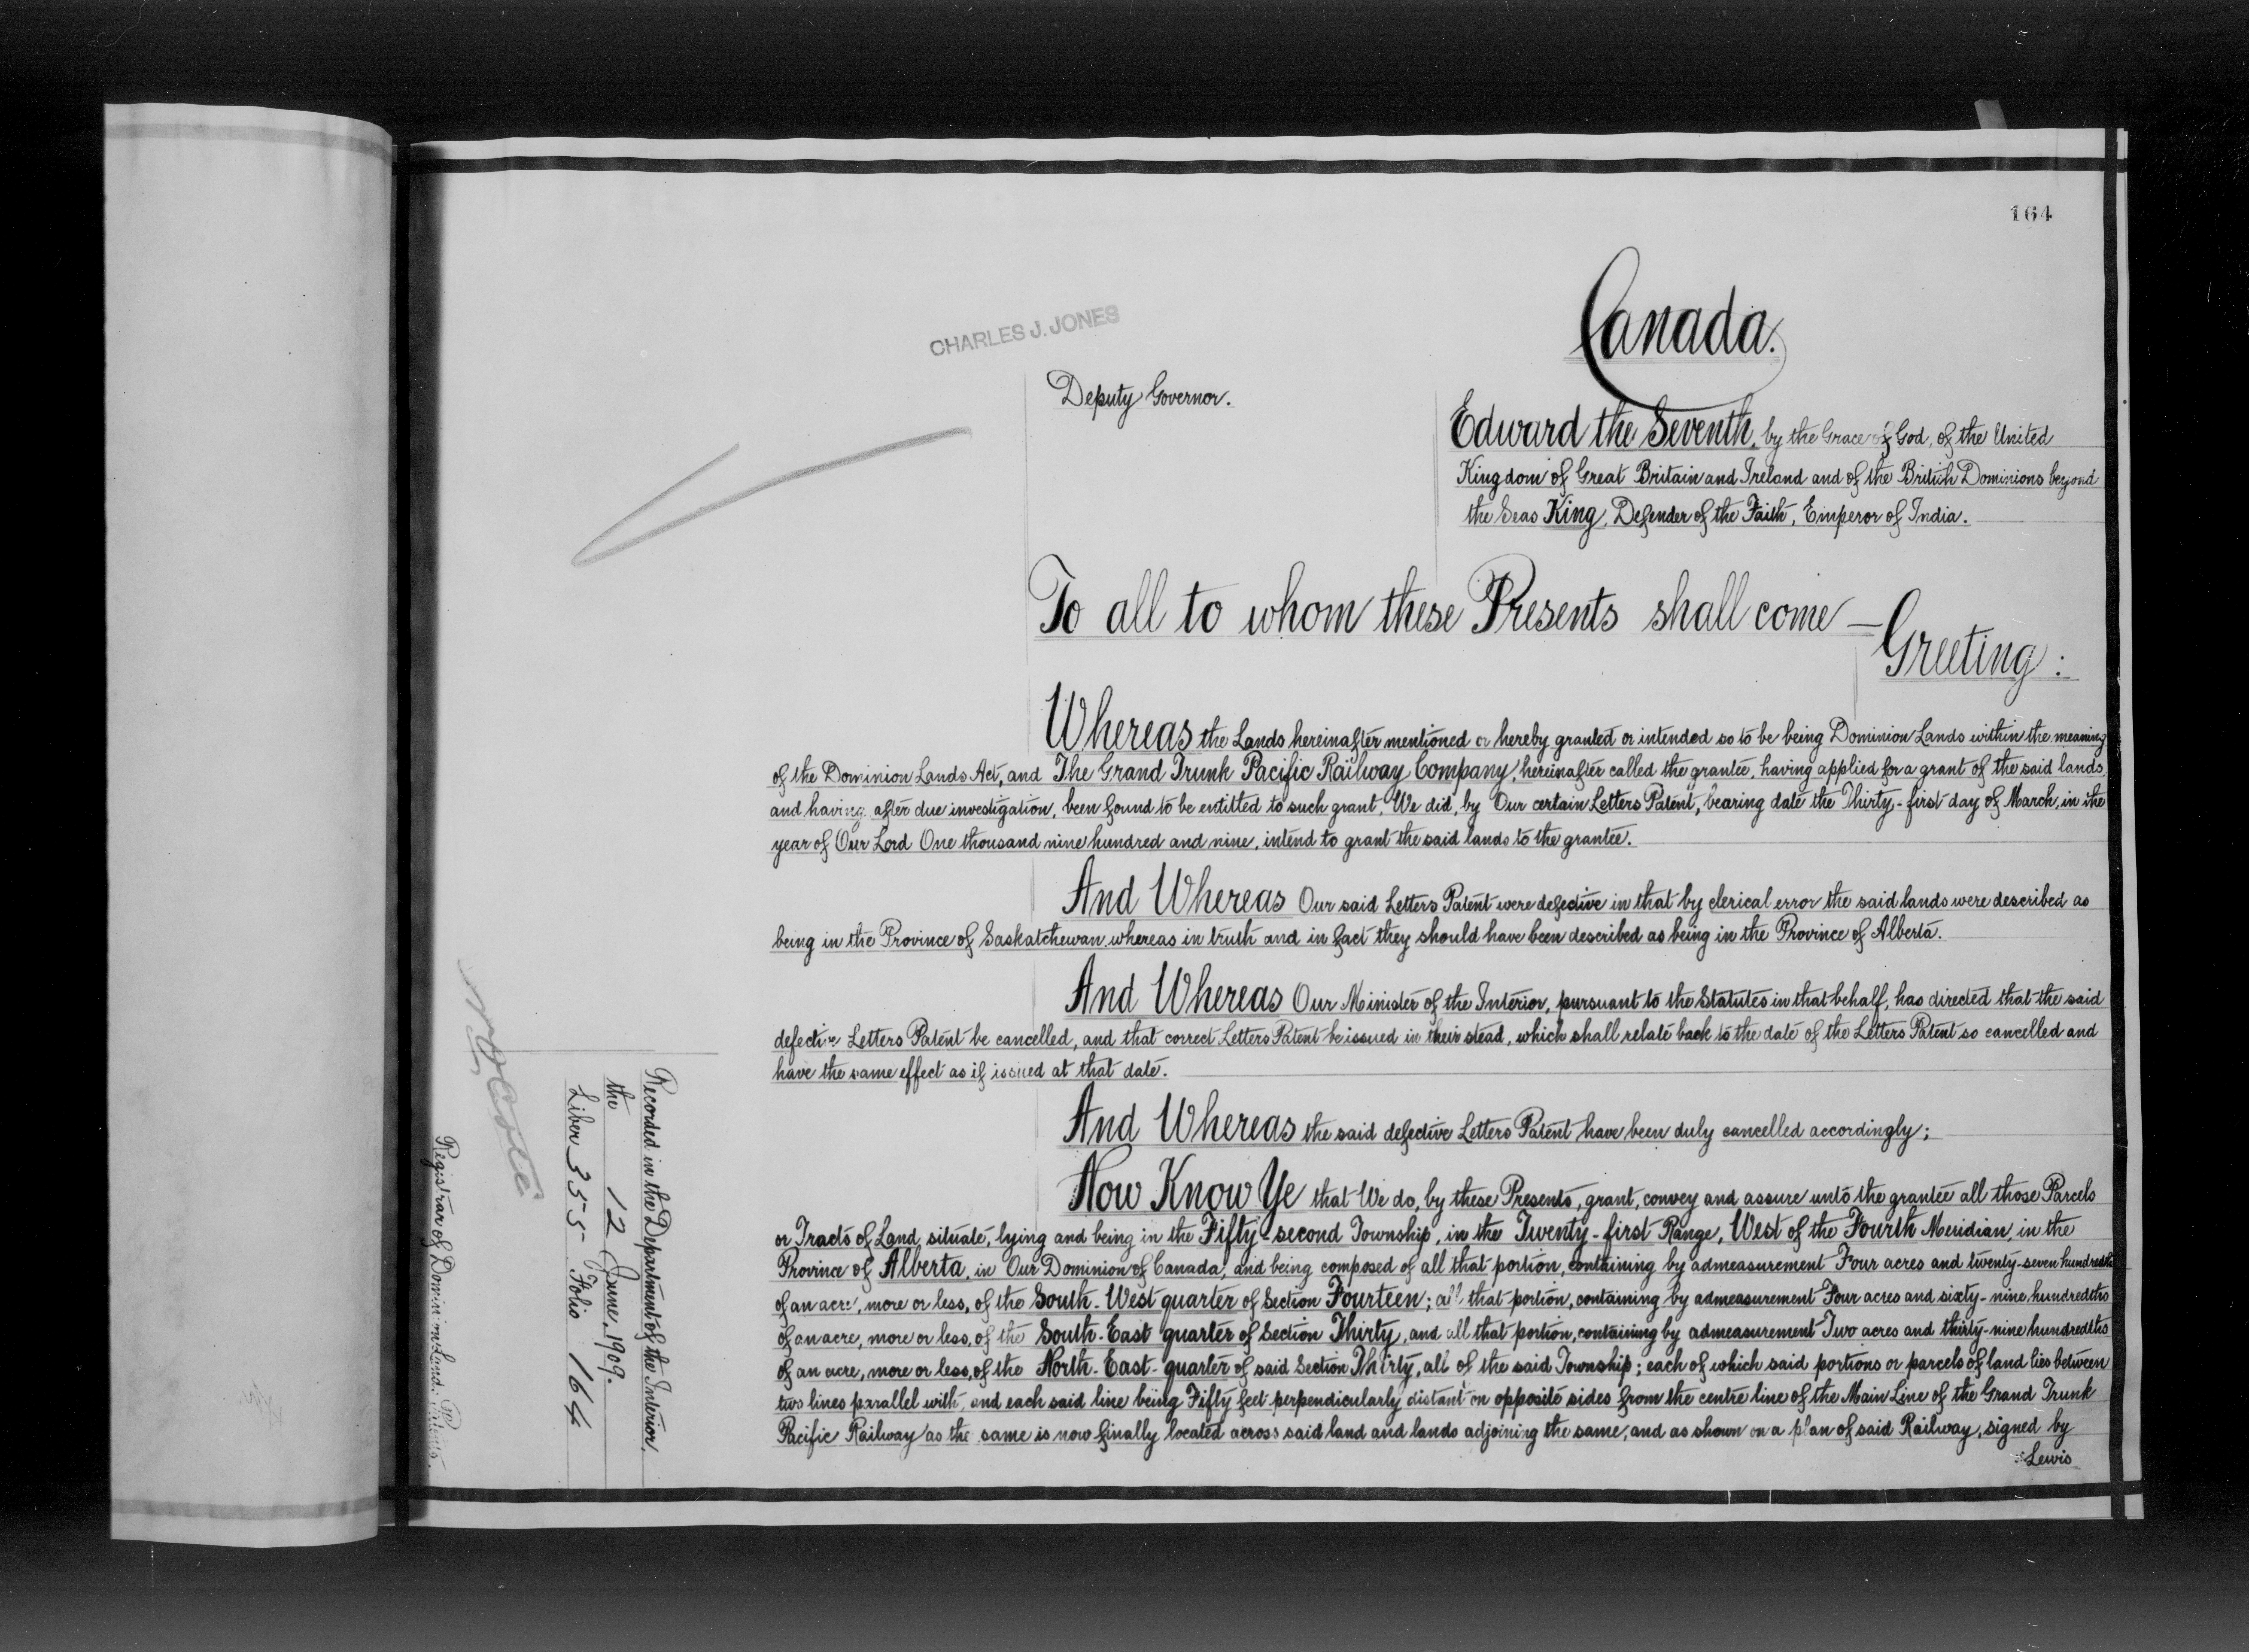 164
CHARLES J. JONES
Deputy Governor.
Canada.
Edward the Seventh, by the Grace of God, of the United
Kingdom of Great Britain and Ireland and of the British Dominions beyond
the Seas King, Defender of the Faith, Emperor of India.
To all to whom these Presents shall come —
Greeting:
Whereas the Lands hereinafter mentioned or hereby granted or intended so to be being Dominion Lands within the meaning
of the Dominion Lands Act, and The Grand Trunk Pacific Railway Company, hereinafter called the grantee, having applied for a grant of the said lands,
and having, after due investigation, been found to be entitled to such grant, We did, by Our certain Letters Patent, bearing date the Thirty-first day of March, in the
year of Our Lord One thousand nine hundred and nine, intend to grant the said lands to the grantee.
And Whereas Our said Letters Patent were defective in that by clerical error the said lands were described as
being in the Province of Saskatchewan, whereas in truth and in fact they should have been described as being in the Province of Alberta.
And Whereas Our Minister of the Interior, pursuant to the Statutes in that behalf, has directed that the said
defective Letters Patent be cancelled, and that correct Letters Patent be issued in their stead, which shall relate back to the date of the Letters Patent so cancelled and
have the same effect as if issued at that date.
And Whereas the said defective Letters Patent have been duly cancelled accordingly;
Now Know Ye that We do, by these Presents, grant, convey and assure unto the grantee all those Parcels
or Tracts of Land, situate, lying and being in the Fifty-second Township, in the Twenty-first Range, West of the Fourth Meridian, in the
Province of Alberta, in Our Dominion of Canada, and being composed of all that portion, containing by admeasurement Four acres and twenty-seven hundredths
of an acre, more or less, of the South-West quarter of Section Fourteen; all that portion, containing by admeasurement Four acres and sixty-nine hundredths
of an acre, more or less, of the South-East quarter of Section Thirty, and all that portion, containing by admeasurement Two acres and thirty-nine hundredths
of an acre, more or less, of the North-East quarter of said Section Thirty, all of the said Township; each of which said portions or parcels of land lies between
two lines parallel with, and each said line being Fifty feet perpendicularly distant on opposite sides from the centre line of the Main Line of the Grand Trunk
Pacific Railway as the same is now finally located across said land and lands adjoining the same, and as shown on a plan of said Railway, signed by
Lewis
Recorded in the Department of the Interior,
the 12 June, 1909.
Liber 355 Folio 164
Registrar of Dominion Lands Patents.